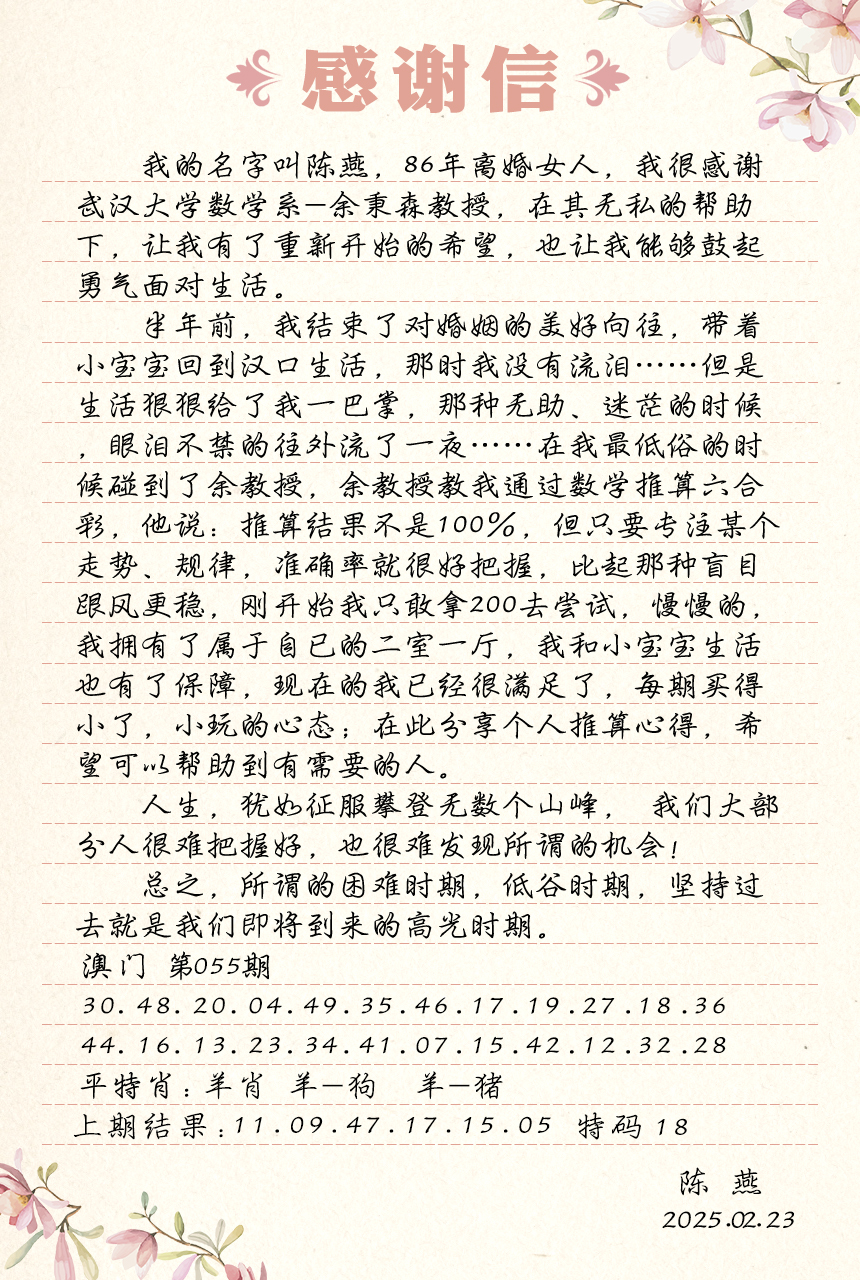 感谢信
我的名字叫陈燕，86年离婚女人，我很感谢
武汉大学数学系—余秉森教授，在其无私的帮助
下，让我有了重新开始的希望，也让我能够鼓起
勇气面对生活。
半年前，我结束了对婚姻的美好向往，带着
小宝宝回到汉口生活，那时我没有流泪……但是
生活狠狠给了我一巴掌，那种无助、迷茫的时候
，眼泪不禁的往外流了一夜……在我最低俗的时
候碰到了余教授，余教授教我通过数学推算六合
彩，他说：推算结果不是100%，但只要专注某个
走势、规律，准确率就很好把握，比起那种盲目
跟风更稳，刚开始我只敢拿200去尝试，慢慢的，
我拥有了属于自已的二室一厅，我和小宝宝生活
也有了保障，现在的我已经很满足了，每期买得
小了，小玩的心态；在此分享个人推算心得，希
望可以帮助到有需要的人。
人生，犹如征服攀登无数个山峰， 我们大部
分人很难把握好，也很难发现所谓的机会！
总之，所谓的困难时期，低谷时期，坚持过
去就是我们即将到来的高光时期。
澳门 第055期
30.48.20.04.49.35.46.17.19.27.18.36
44.16.13.23.34.41.07.15.42.12.32.28
平特肖：羊肖 羊—狗 羊—猪
上期结果：11.09.47.17.15.05 特码 18
陈 燕
2025.02.23